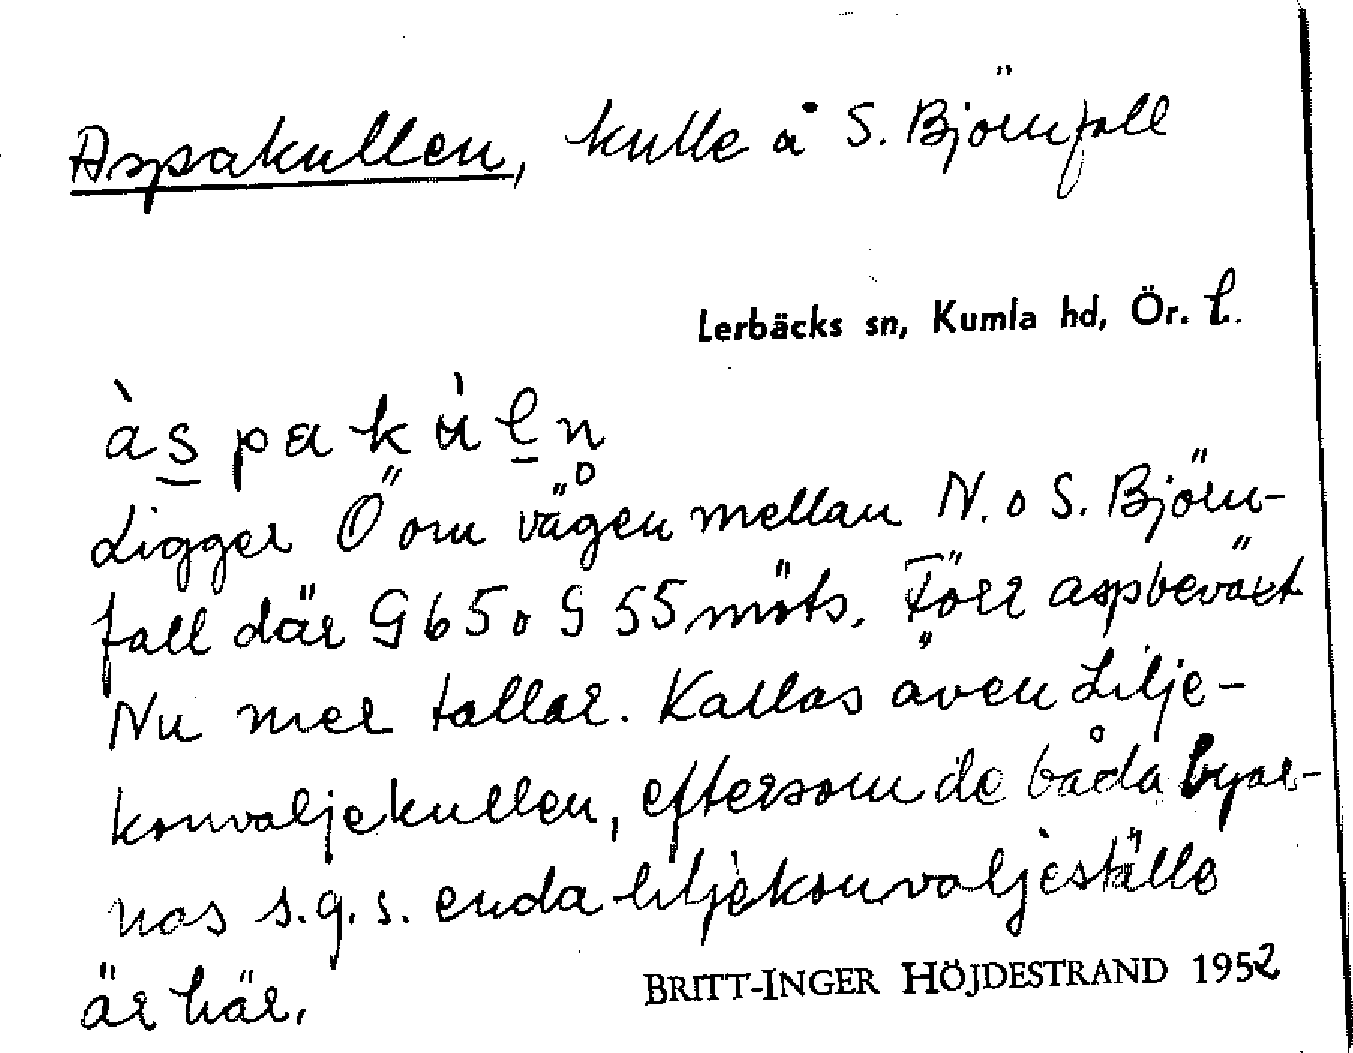 Aspakullen, kulle å S. Björnfall
Lerbäcks sn, Kumla hd, Ör. l.
àspakùln
Ligger Ö om vägen mellan N. o S. Björn-
fall där G65 o G55 möts. Förr aspbeväxt
Nu mer tallar. Kallas även Lilje-
konvaljekullen, eftersom de båda byar-
nas s.g.s. enda liljekonvaljeställe
är här.
BRITT-INGER HÖJDESTRAND 1952